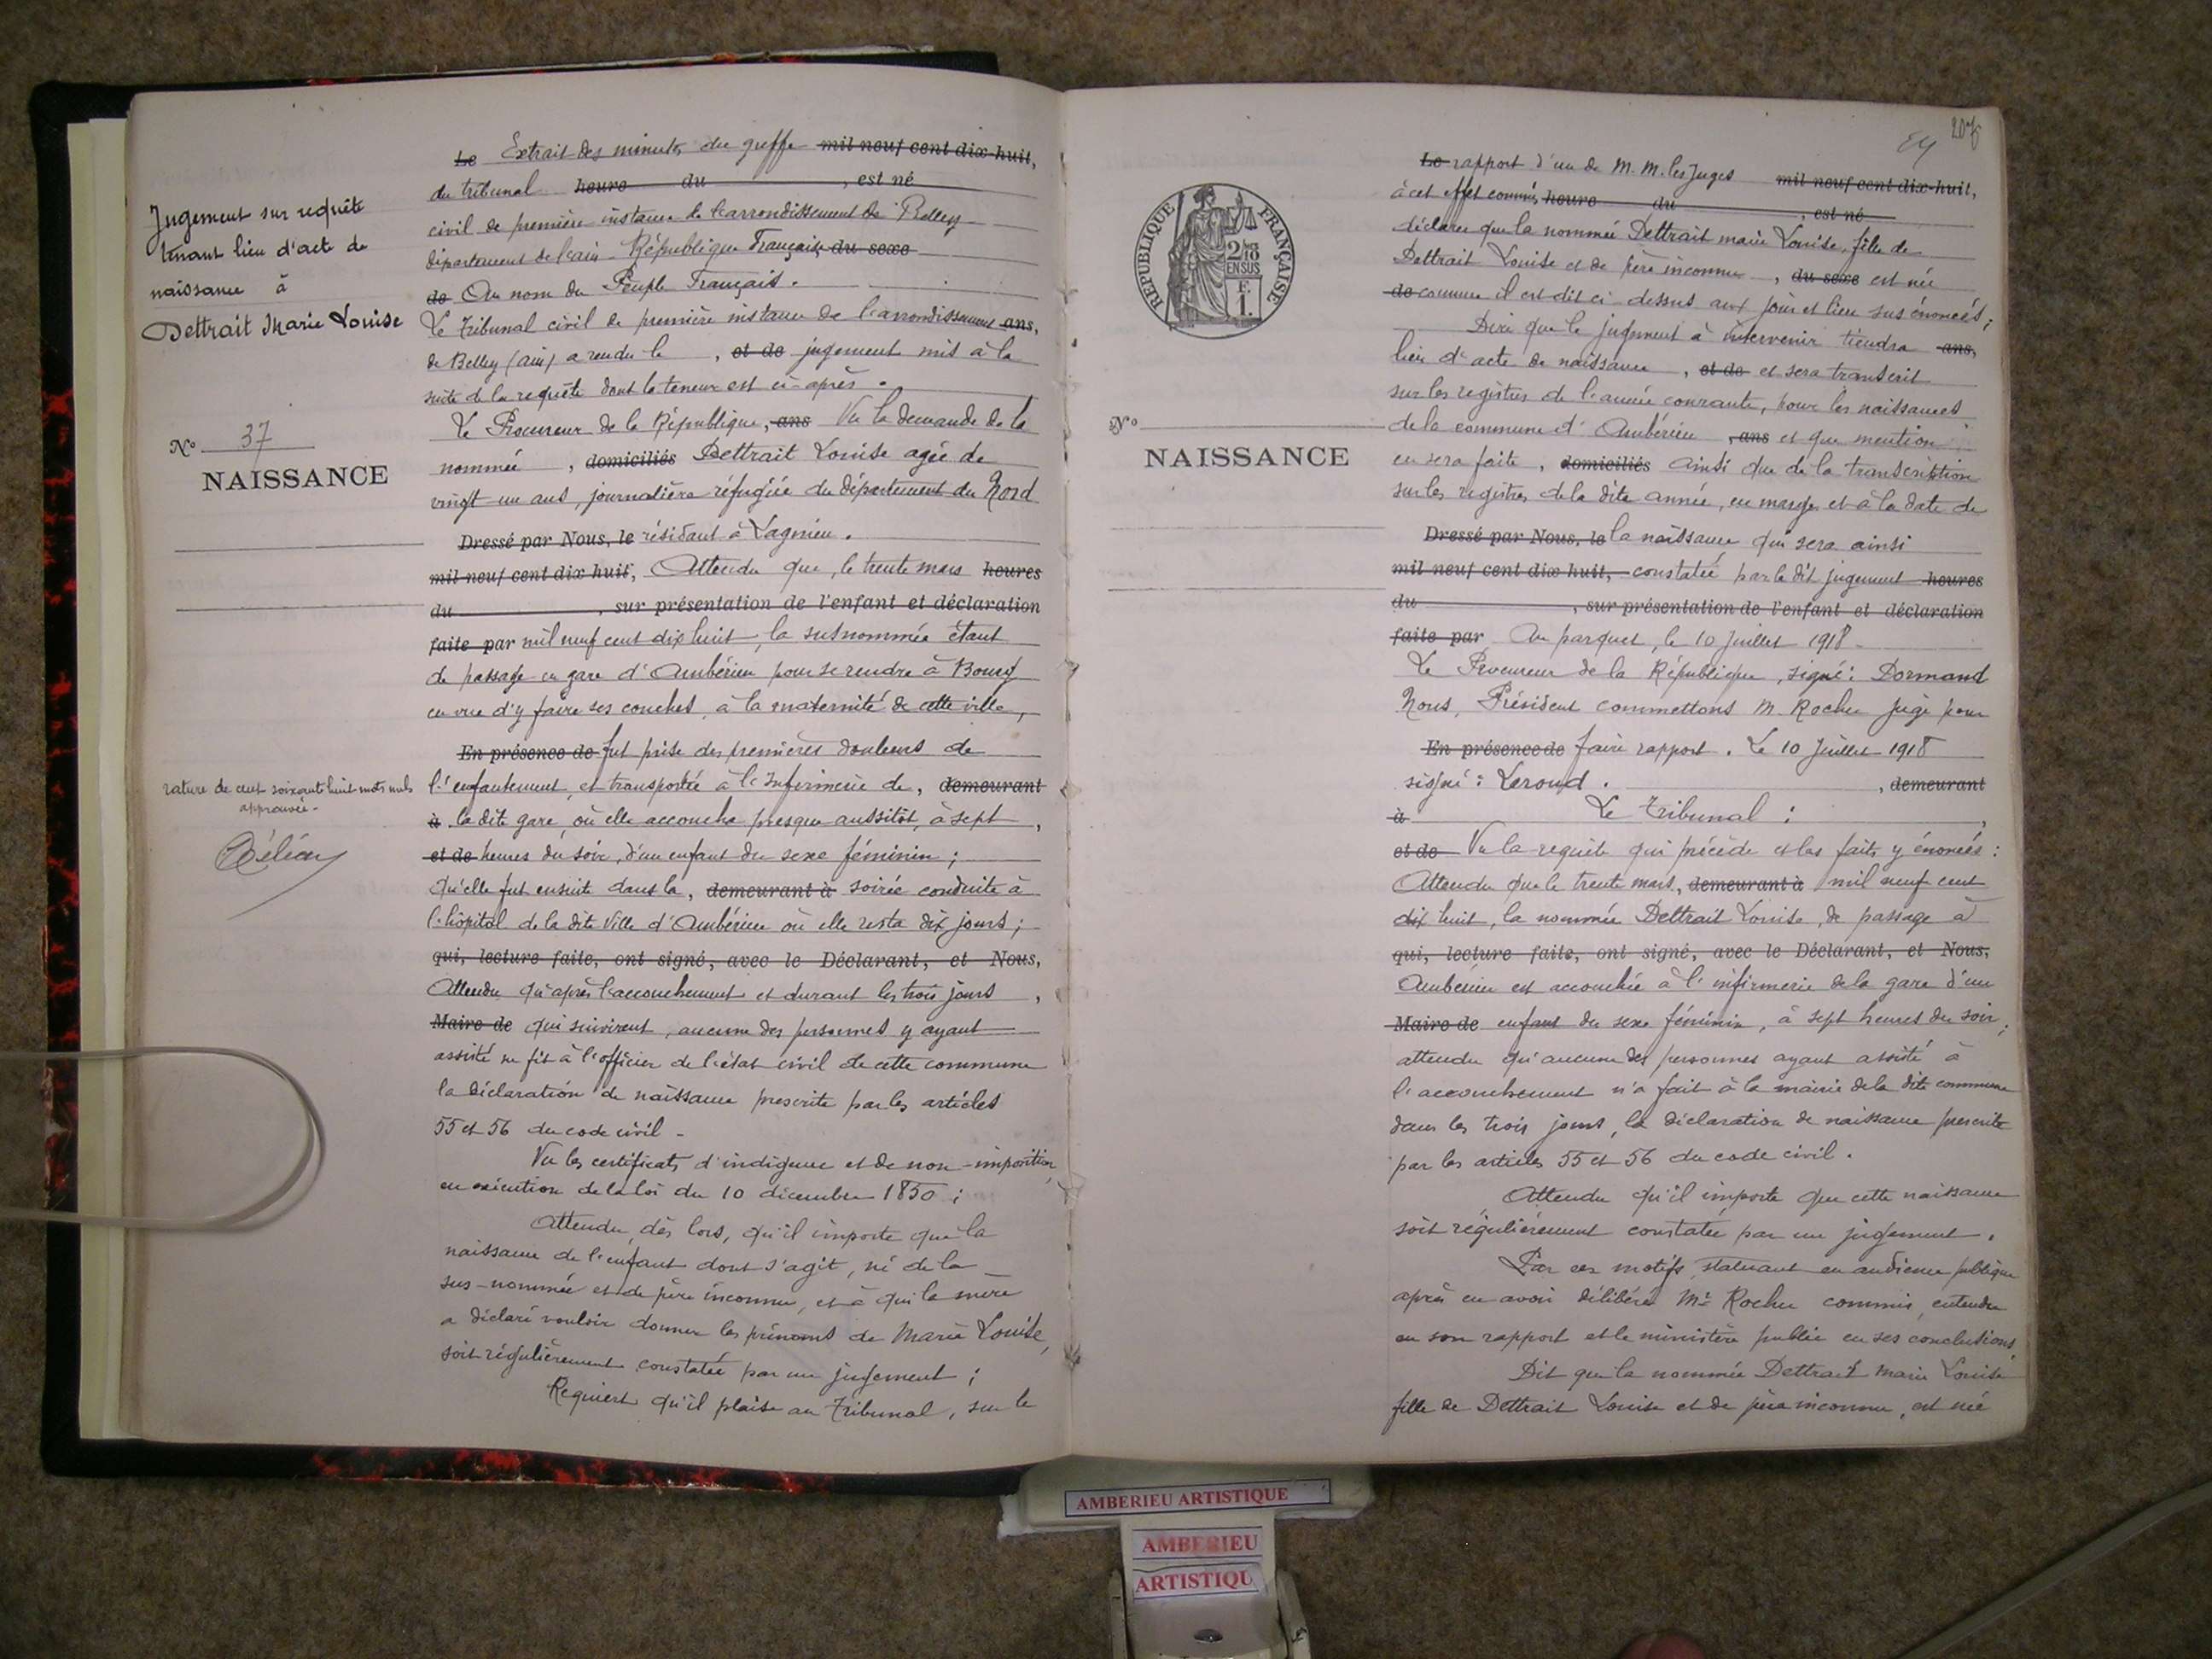 Jugement sur requête
tenant lieu d'acte de
naissance à
Dettrait Marie Louise
No 37
NAISSANCE
rature de cent soixante huit mots nuls
approuvée.
Le Extrait des minutes du greffe mil neuf cent dix-huit,
du tribunal heure du , est né
civil de première instance de l'arrondissement de Belley
département de l'ain - République Française du sexe
de Au nom du Peuple Français.
Le Tribunal civil de première instance de l'arrondissement ans,
de Belley (ain) a rendu le , et de jugement mis à la
suite de la requête dont la teneur est ci-après.
Le Procureur de la République, ans Vu la demande de la
nommée , domiciliés Dettrait Louise agée de
vingt un ans, journalière réfugiée du département du Nord
Dressé par Nous, le résidant à Lagnieu.
mil neuf cent dix huit, Attendu que, le trente mars heures
du , sur présentation de l'enfant et déclaration
faite par mil neuf cent dix huit, la susnommée étant
de passage en gare d'Ambérieu pour se rendre à Bourg
en vue d'y faire ses couches, à la maternité de cette ville,
En présence de fut prise des premières douleurs de
l'enfantement, et transportée à l'Infirmerie de, demeurant
à la dite gare, où elle accoucha presque aussitôt, à sept ,
et de heures du soir, d'un enfant du sexe féminin ;
Qu'elle fut ensuite dans la, demeurant à soirée conduite à
l'hôpital de la dite Ville d'Ambérieu où elle resta dix jours ;
qui, lecture faite, ont signé, avec le Déclarant, et Nous,
Attendu qu'après l'accouchement et durant les trois jours ,
Maire de qui suivirent, aucune des personnes y ayant
assisté ne fit à l'officier de l'état civil de cette commune
la déclaration de naissance prescrite par les articles
55 et 56 du code civil -
Vu les certificats d'indigence et de non-imposition,
en exécution de la loi du 10 décembre 1850 ;
Attendu, dès lors, qu'il importe que la
naissance de l'enfant dont s'agit, né de la
sus-nommée et de père inconnu, et à qui la mère
a déclaré vouloir donner les prénoms de Marie Louise,
soit régulièrement constatée par un jugement ;
Requiert qu'il plaise au Tribunal, sur le
207
REPUBLIQUE FRANÇAISE
2/10
EN SUS
F.
1.
No
NAISSANCE
Le rapport d'un de M.M. les Juges mil neuf cent dix-huit,
à cet effet commis, heure du , est né
déclarer que la nommée Dettrait marie Louise, fille de
Dettrait Louise et de père inconnu , du sexe est née
de comme il est dit ci-dessus aux jour et lieu sus énoncés ;
Dire que le jugement à intervenir tiendra ans,
lieu d'acte de naissance , et de et sera transcrit
sur les registres de l'année courante, pour les naissances
de la commune d'Ambérieu , ans et que mention
en sera faite , domiciliés ainsi que de la transcription
sur les registres de la dite année, en marge et à la date de
Dressé par Nous, le la naissance qui sera ainsi
mil neuf cent dix huit, constatée par le dit jugement heures
du , sur présentation de l'enfant et déclaration
faite par Au parquet, le 10 Juillet 1918
Le Procureur de la République, signé : Dormand
Nous, Président commettons M. Rochu juge pour
En présence de faire rapport. Le 10 Juillet 1918
signé : Leroud . , demeurant
à Le Tribunal : ,
et de Vu la requête qui précède et les faits y énoncés :
Attendu que le trente mars, demeurant à mil neuf cent
dix huit, la nommée Dettrait Louise, de passage à
qui, lecture faite, ont signé, avec le Déclarant, et Nous,
Ambérieu est accouchée à l'infirmerie de la gare d'un
Maire de enfant du sexe féminin, à sept heures du soir ;
attendu qu'aucune des personnes ayant assisté à
l'accouchement n'a fait à la mairie de la dite commune
dans les trois jours, la déclaration de naissance prescrite
par les articles 55 et 56 du code civil.
Attendu qu'il importe que cette naissance
soit régulièrement constatée par un jugement.
Par ces motifs, statuant en audience publique
après en avoir délibéré Mr Rochu commis, entendu
en son rapport et le ministère public en ses conclusions,
Dit que la nommée Dettrait Marie Louise
fille de Dettrait Louise et de père inconnu, est née
AMBERIEU ARTISTIQUE
AMBERIEU
ARTISTIQU